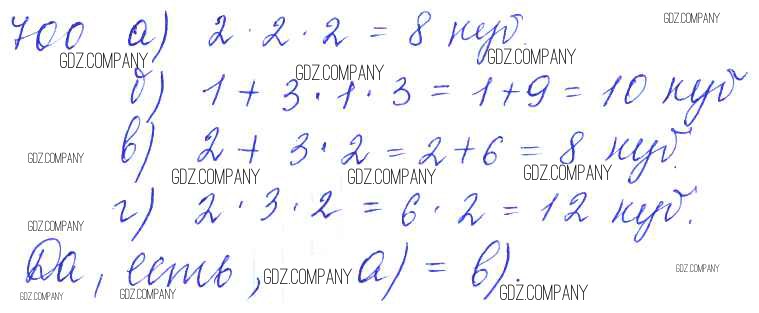 700 а) 2 · 2 · 2 = 8 куб. GDZ.COMPANY
GDZ.COMPANY GDZ.COMPANY GDZ.COMPANY
б) 1 + 3 · 1 · 3 = 1+9 = 10 куб
GDZ.COMPANY в) 2 + 3 · 2 = 2+6 = 8 куб.
GDZ.COMPANY GDZ.COMPANY
г) 2 · 3 · 2 = 6 · 2 = 12 куб.
GDZ.COMPANY
Да, есть, GDZ.COMPANY а) = в). GDZ.COMPANY
GDZ.COMPANY GDZ.COMPANY GDZ.COMPANY